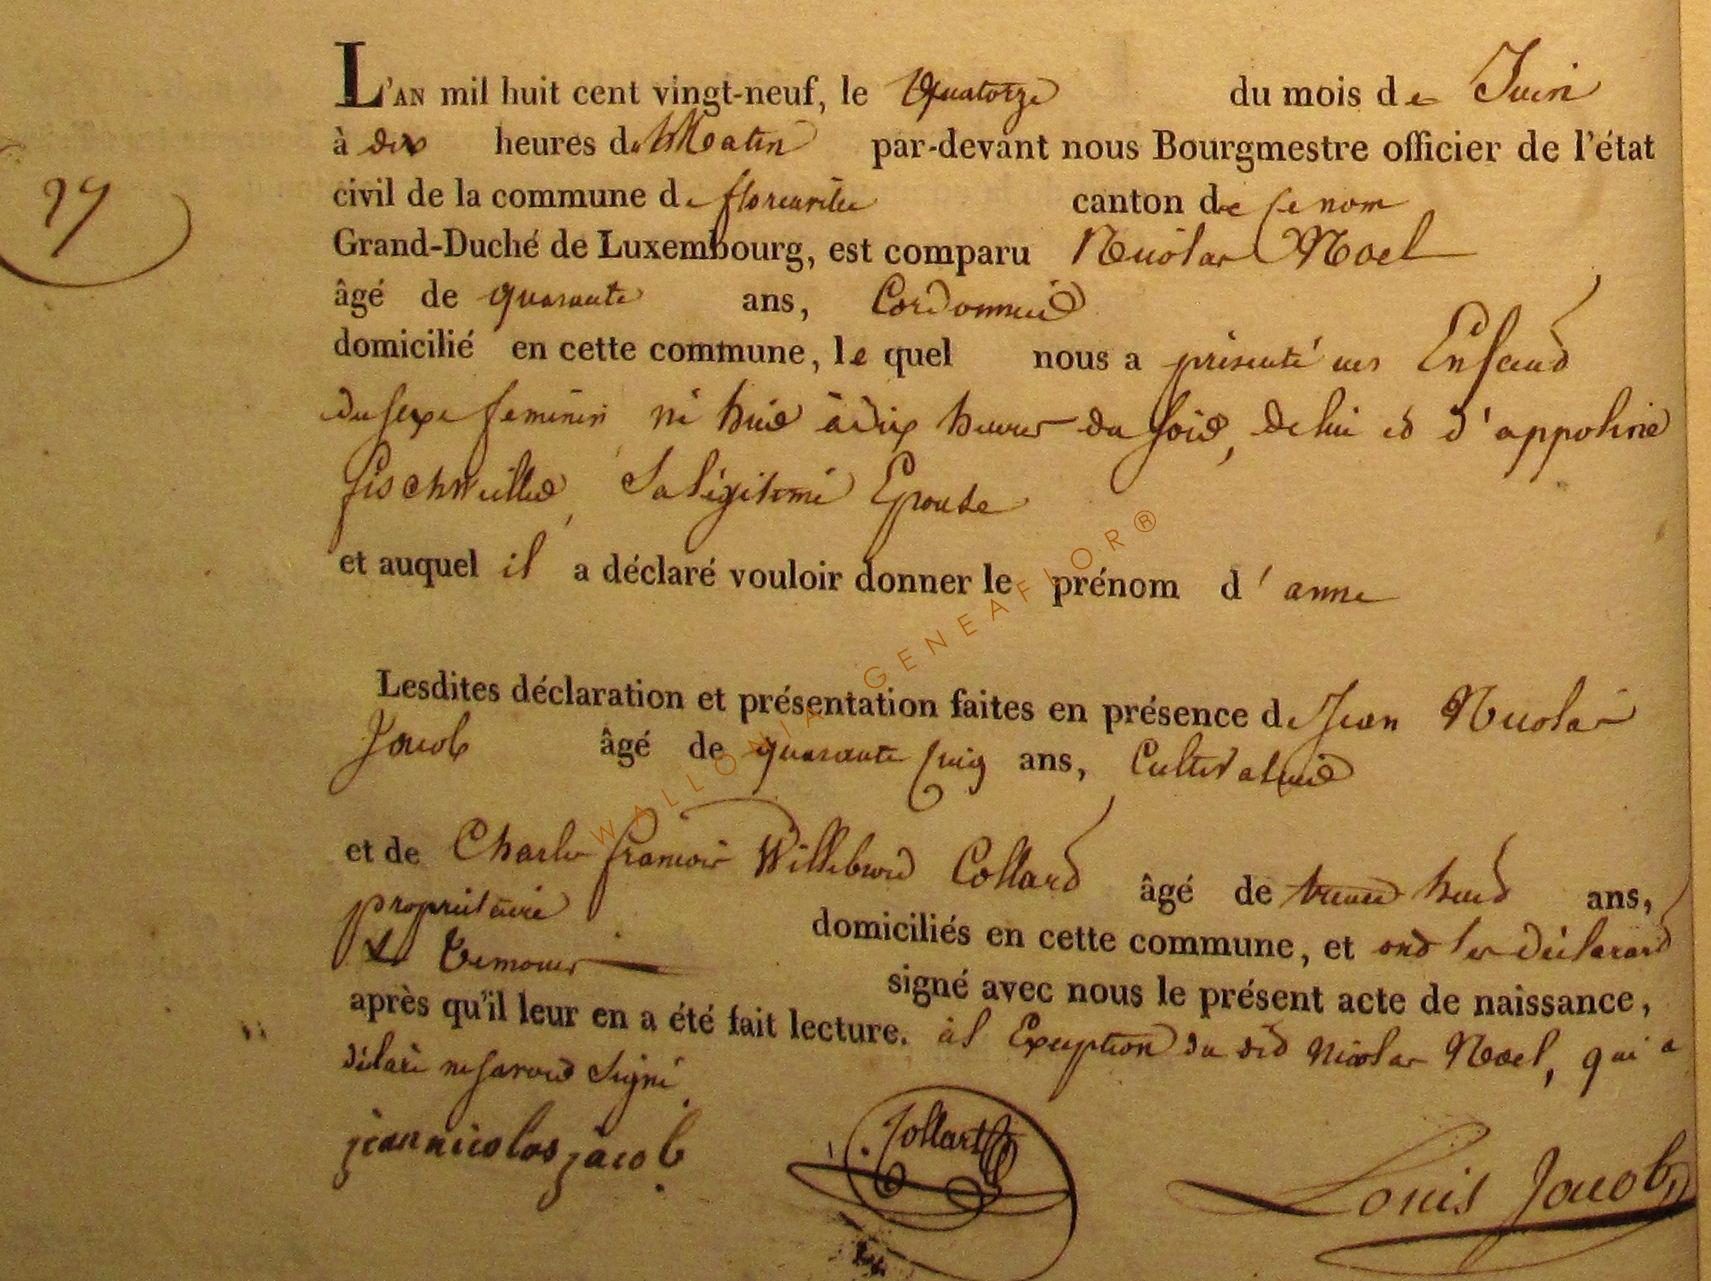 L'AN mil huit cent vingt-neuf, le Quatorze du mois de Juin
27
à dix heures du Matin par-devant nous Bourgmestre officier de l'état
civil de la commune de florenville canton de ce nom
Grand-Duché de Luxembourg, est comparu Nicolas Noel
âgé de quarante ans, Cordonnier
domicilié en cette commune, le quel nous a présenté un Enfant
du sexe feminin né hier à dix heures du soir, de lui et d'appoline
fischweiller, Sa légitime Epouse
et auquel il a déclaré vouloir donner le prénom d'anne
Lesdites déclaration et présentation faites en présence de Jean Nicolas
Jacob âgé de quarante cinq ans, Cultivateur
et de Charles francois Willebrord Collard âgé de trente huit ans,
propriétaire domiciliés en cette commune, et ont les déclarant
& temoins signé avec nous le présent acte de naissance,
après qu'il leur en a été fait lecture. à l'Exception du dit Nicolas Noel, qui a
déclaré ne savoir signé
jean nicolas jacob
Collart
Louis Jacob
WALLONIA GENEAFLOR®